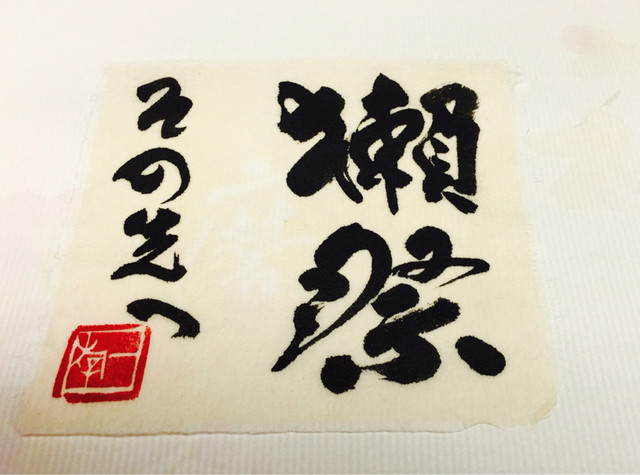 獺祭
その先へ